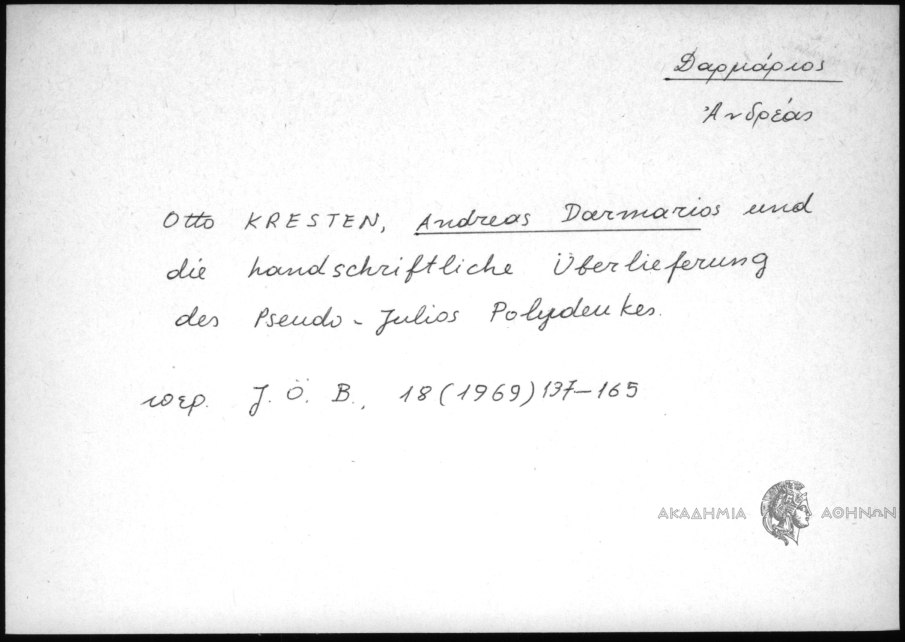 Δαρμάριος
Ἀνδρέας
Otto KRESTEN, Andreas Darmarios und
die handschriftliche Überlieferung
des Pseudo-Julios Polydeukes.
περ. J. Ö. B., 18 (1969) 137-165
ΑΚΑΔΗΜΙΑ ΑΘΗΝΩΝ